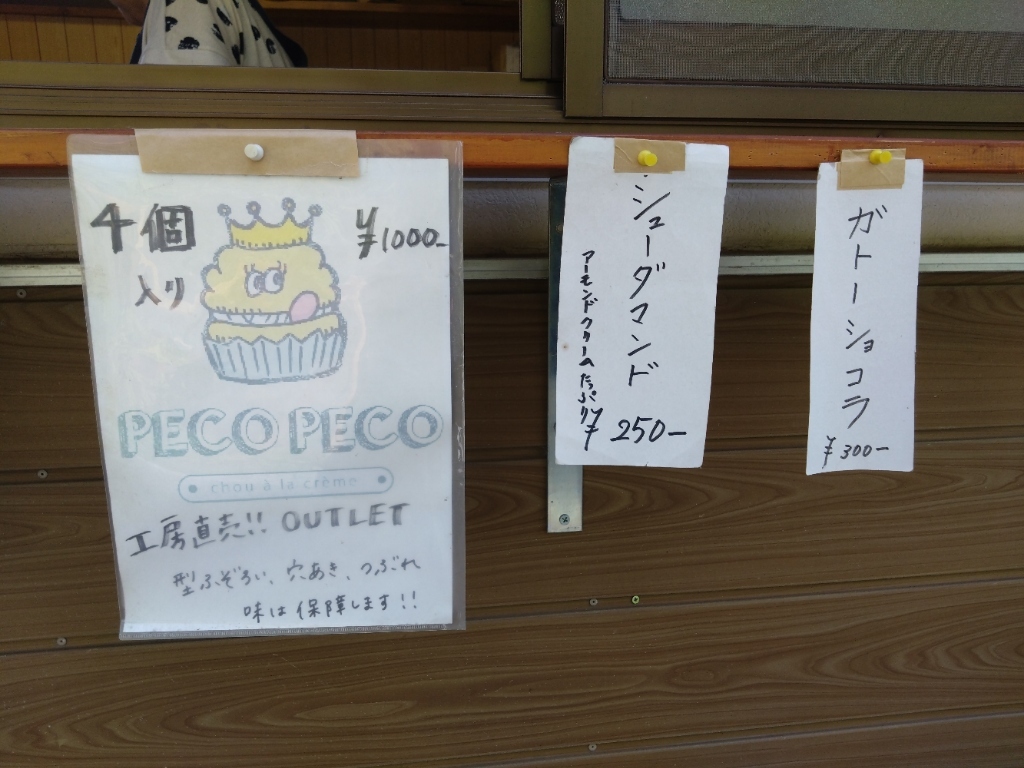 4個
入り
¥1000-
PECO PECO
chou à la crème
工房直売!! OUTLET
型ふぞろい、穴あき、つぶれ
味は保障します!!
シューダマンド
アーモンドクリームたっぷり
¥250-
ガトーショコラ
¥300-